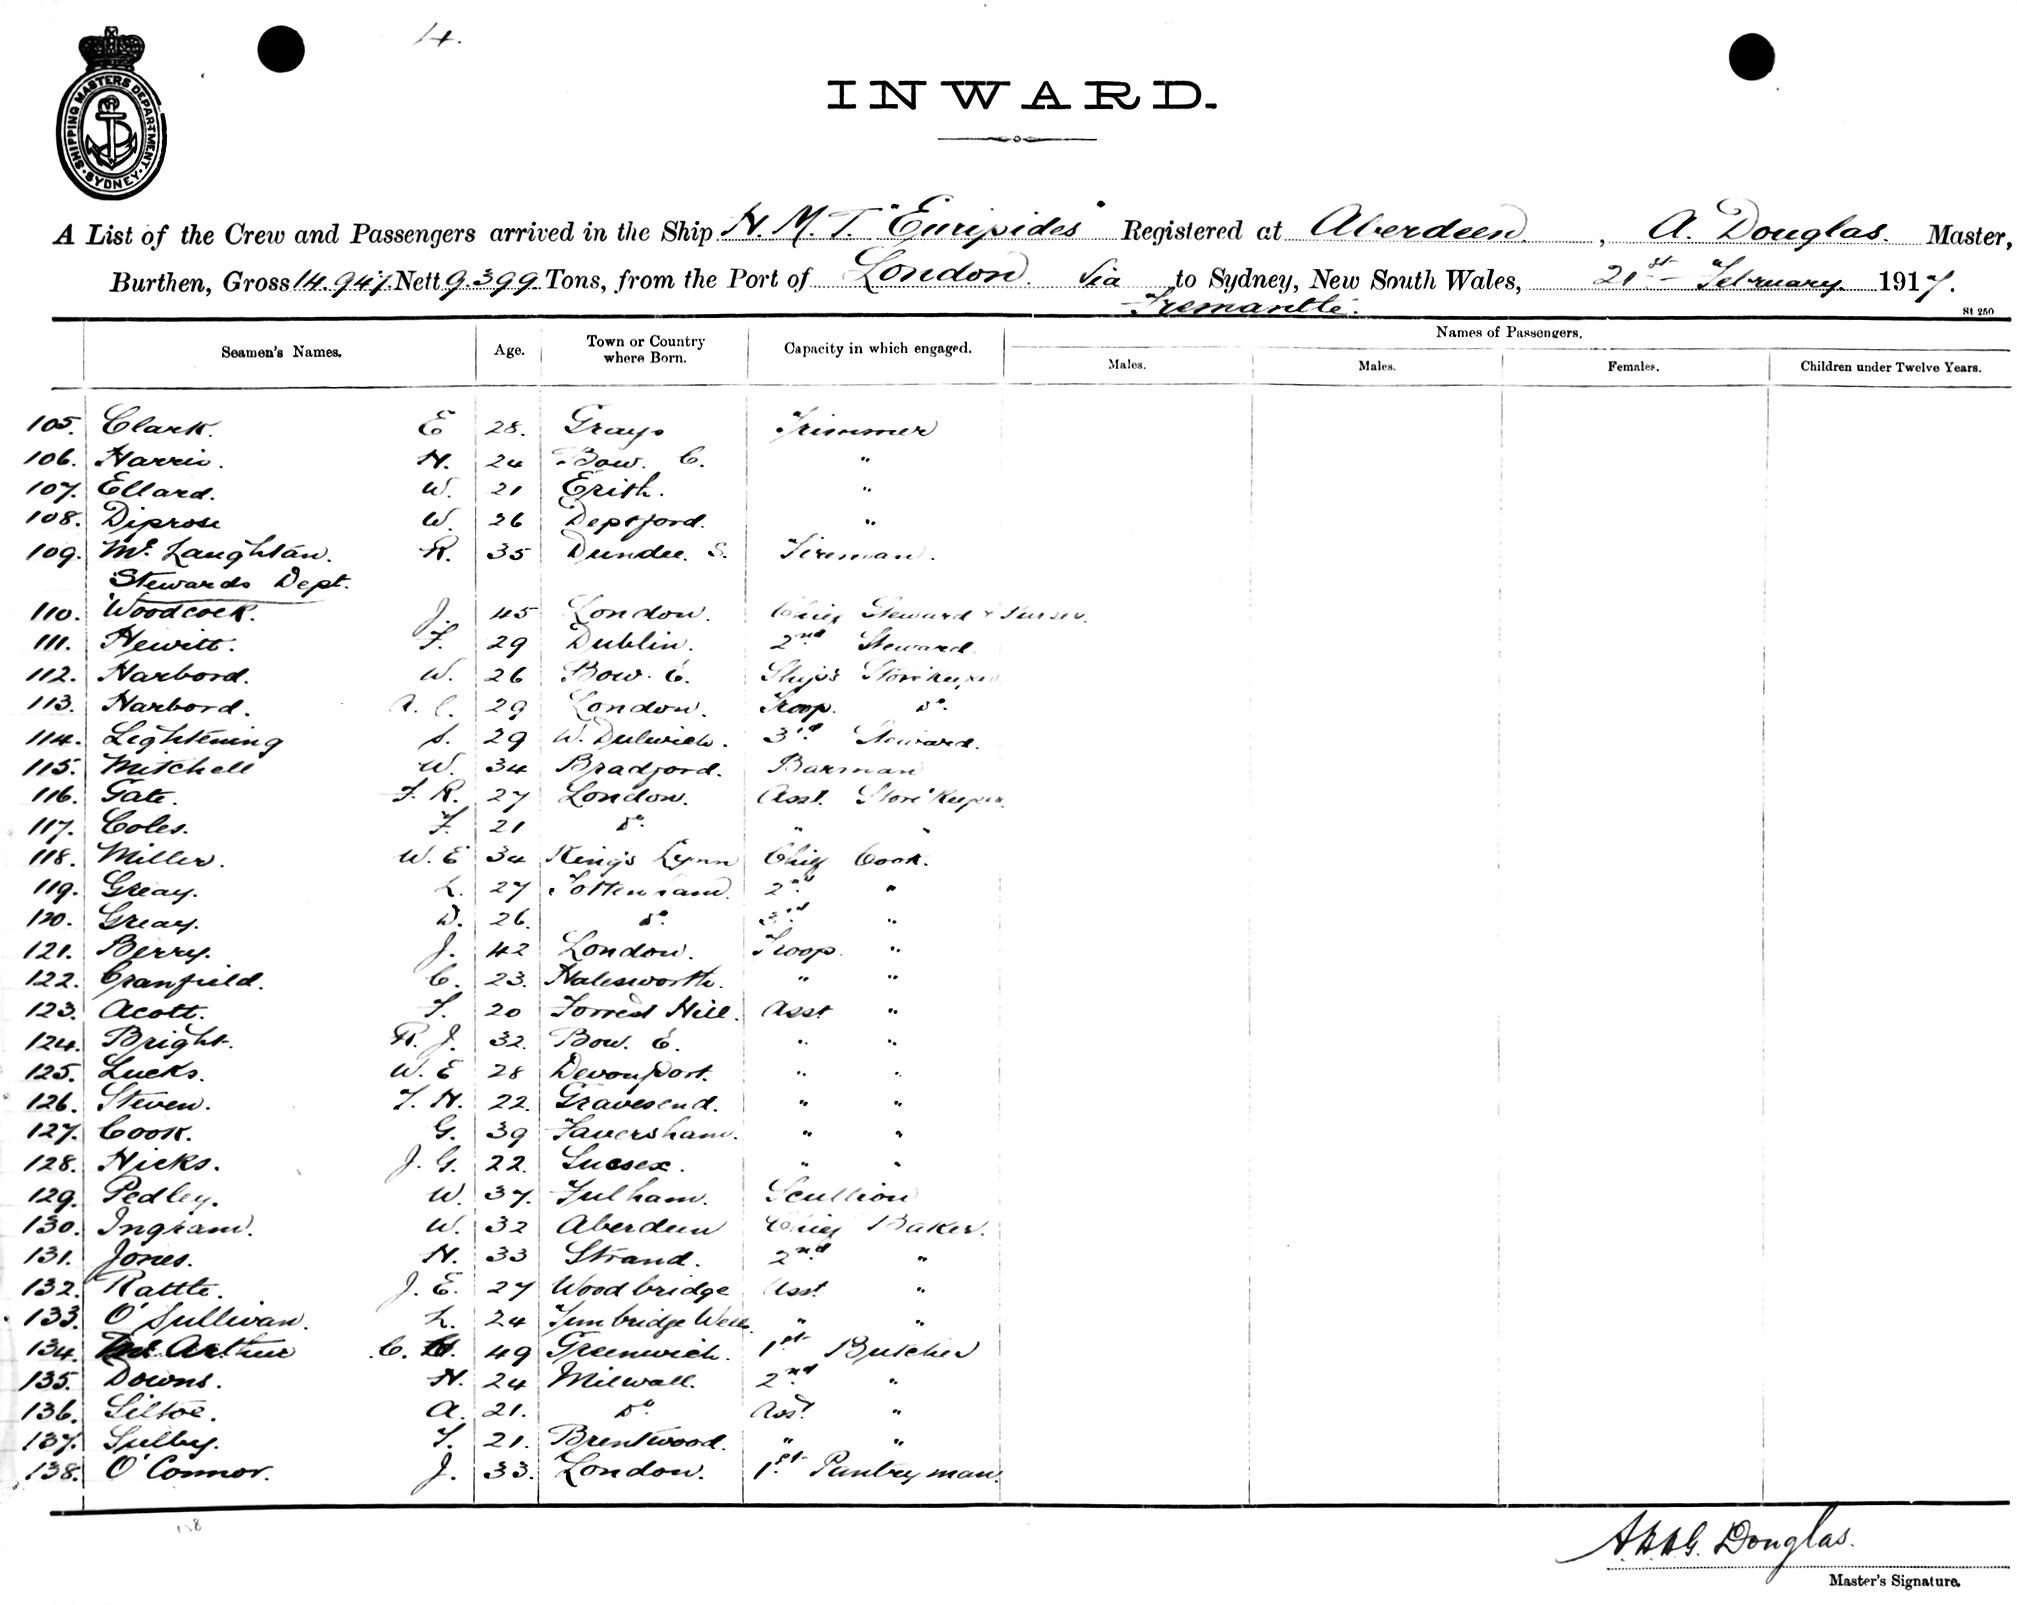 14.
SHIPPING MASTERS DEPARTMENT. SYDNEY.
INWARD.
A List of the Crew and Passengers arrived in the Ship H. M. T. "Euripides" Registered at Aberdeen, A. Douglas. Master,
Burthen, Gross 14.947 Nett 9.399 Tons, from the Port of London. Via to Sydney, New South Wales, 21st February 1917.
Fremantle.
St 250
Seamen's Names. Age. Town or Country where Born. Capacity in which engaged. Names of Passengers.
Males. Males. Females. Children under Twelve Years.
105. Clark. E 28. Grays Trimmer
106. Harris. H. 24 Bow. "
107. Ellard. W. 21 Erith. "
108. Diprose W. 26 Deptford. "
109. Mc. Laughlan. R. 35 Dundee. S. Fireman.
Stewards Dept.
110. Woodcock. J. 45 London. Chief Steward & Purser.
111. Hewitt. F. 29 Dublin. 2nd Steward.
112. Harbord. W. 26 Bow. E. Ship's Storekeeper
113. Harbord. A. C. 29 London. Troop. Do.
114. Lightening S. 29 W. Dulwich. 3rd Steward.
115. Mitchell W. 34 Bradford. Barman
116. Gate. F. R. 27 London. Asst. Store Keeper.
117. Coles. F. 21 Do. " "
118. Miller. W. E 34 King's Lynn Chief Cook.
119. Greay. L. 27 Tottenham. 2nd "
120. Greay. D. 26. Do. 3rd "
121. Berry. J. 42 London. Troop. "
122. Cranfield. C. 23. Halesworth. " "
123. Acott. T. 20 Forrest Hill. Asst "
124. Bright. R. J. 32. Bow. E. " "
125. Lucks. W. E 28 Devonport. " "
126. Steven. T. H. 22. Gravesend. " "
127. Cook. G. 39 Faversham. " "
128. Hicks. J. G. 22. Sussex. " "
129. Pedley. W. 37. Fulham. Scullion
130. Ingram. W. 32 Aberdeen Chief Baker.
131. Jones. H. 33 Strand. 2nd "
132. Rattle. J. E. 27 Woodbridge Asst "
133. O'Sullivan. L. 24 Tunbridge Wells. " "
134. Mc Arthur C. 49 Greenwich. 1st Butcher
135. Downs. H. 24 Milwall. 2nd "
136. Siltoe. A. 21. Do. Asst "
137. Selby. T. 21. Brentwood. " "
138. O'Connor. J. 33. London. 1st Pantryman.
Douglas.
Master's Signature.